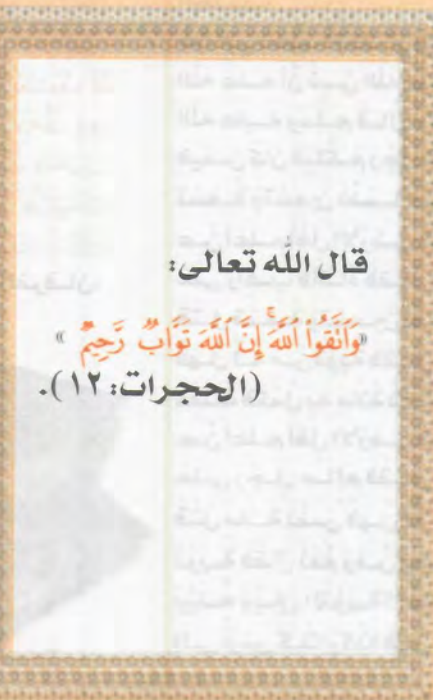 قال الله تعالى:
«وَاتَّقُوا اللَّهَ ۚ إِنَّ اللَّهَ تَوَّابٌ رَّحِيمٌ»
(الحجرات: ١٢).